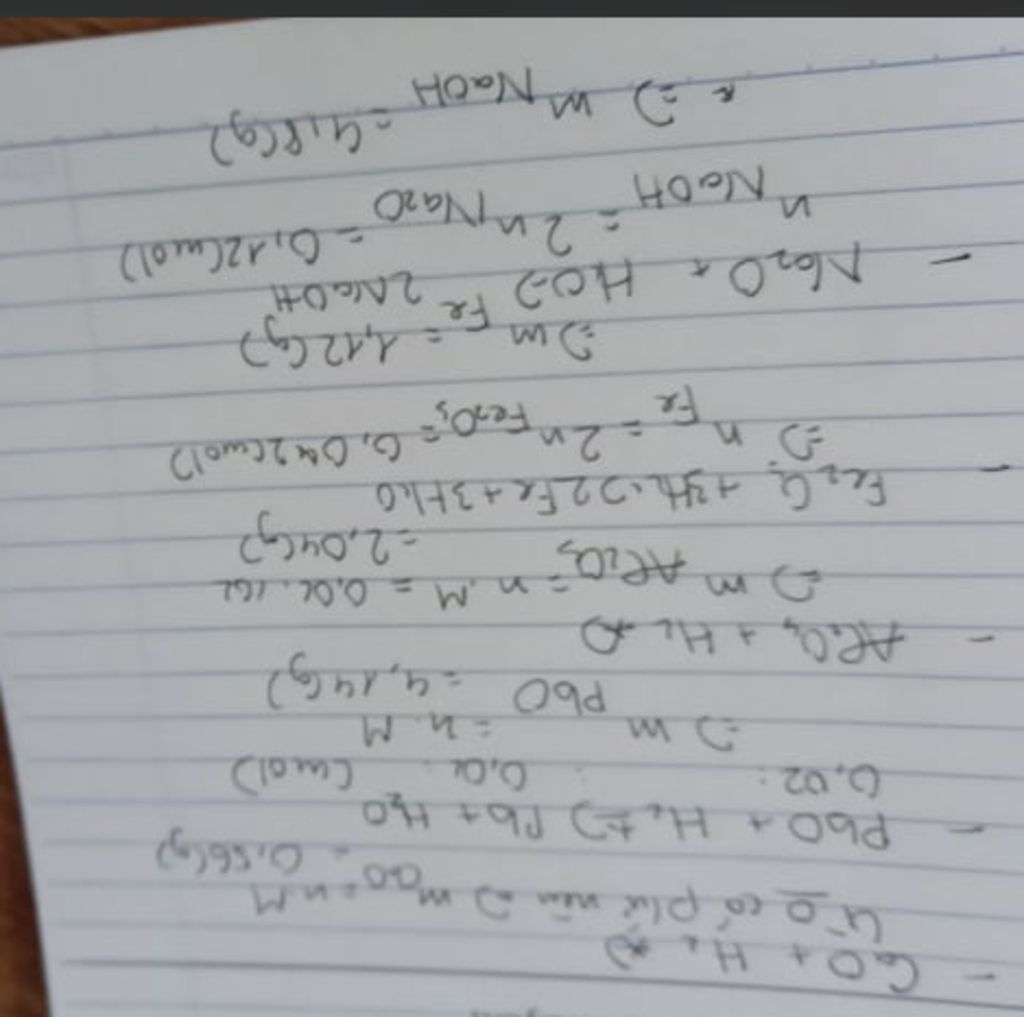 - CaO + H₂ ≠>
K° có phư nên => m CaO = n.M
= 0,56(g)
- PbO + H₂ t°=> Pb + H₂O
0,02 : 0,02 (mol)
=> m PbO = n.M
= 4,14(g)
- Al₂O₃ + H₂ ≠>
=> m Al₂O₃ = n.M = 0,02.102
= 2,04(g)
- Fe₂O₃ + 3H₂ => 2Fe + 3H₂O
=> n Fe = 2n Fe₂O₃ = 0,042(mol)
=> m Fe = 1,12(g)
- Na₂O + H₂O => 2NaOH
n NaOH = 2n Na₂O = 0,12(mol)
=> m NaOH = 4,8(g)